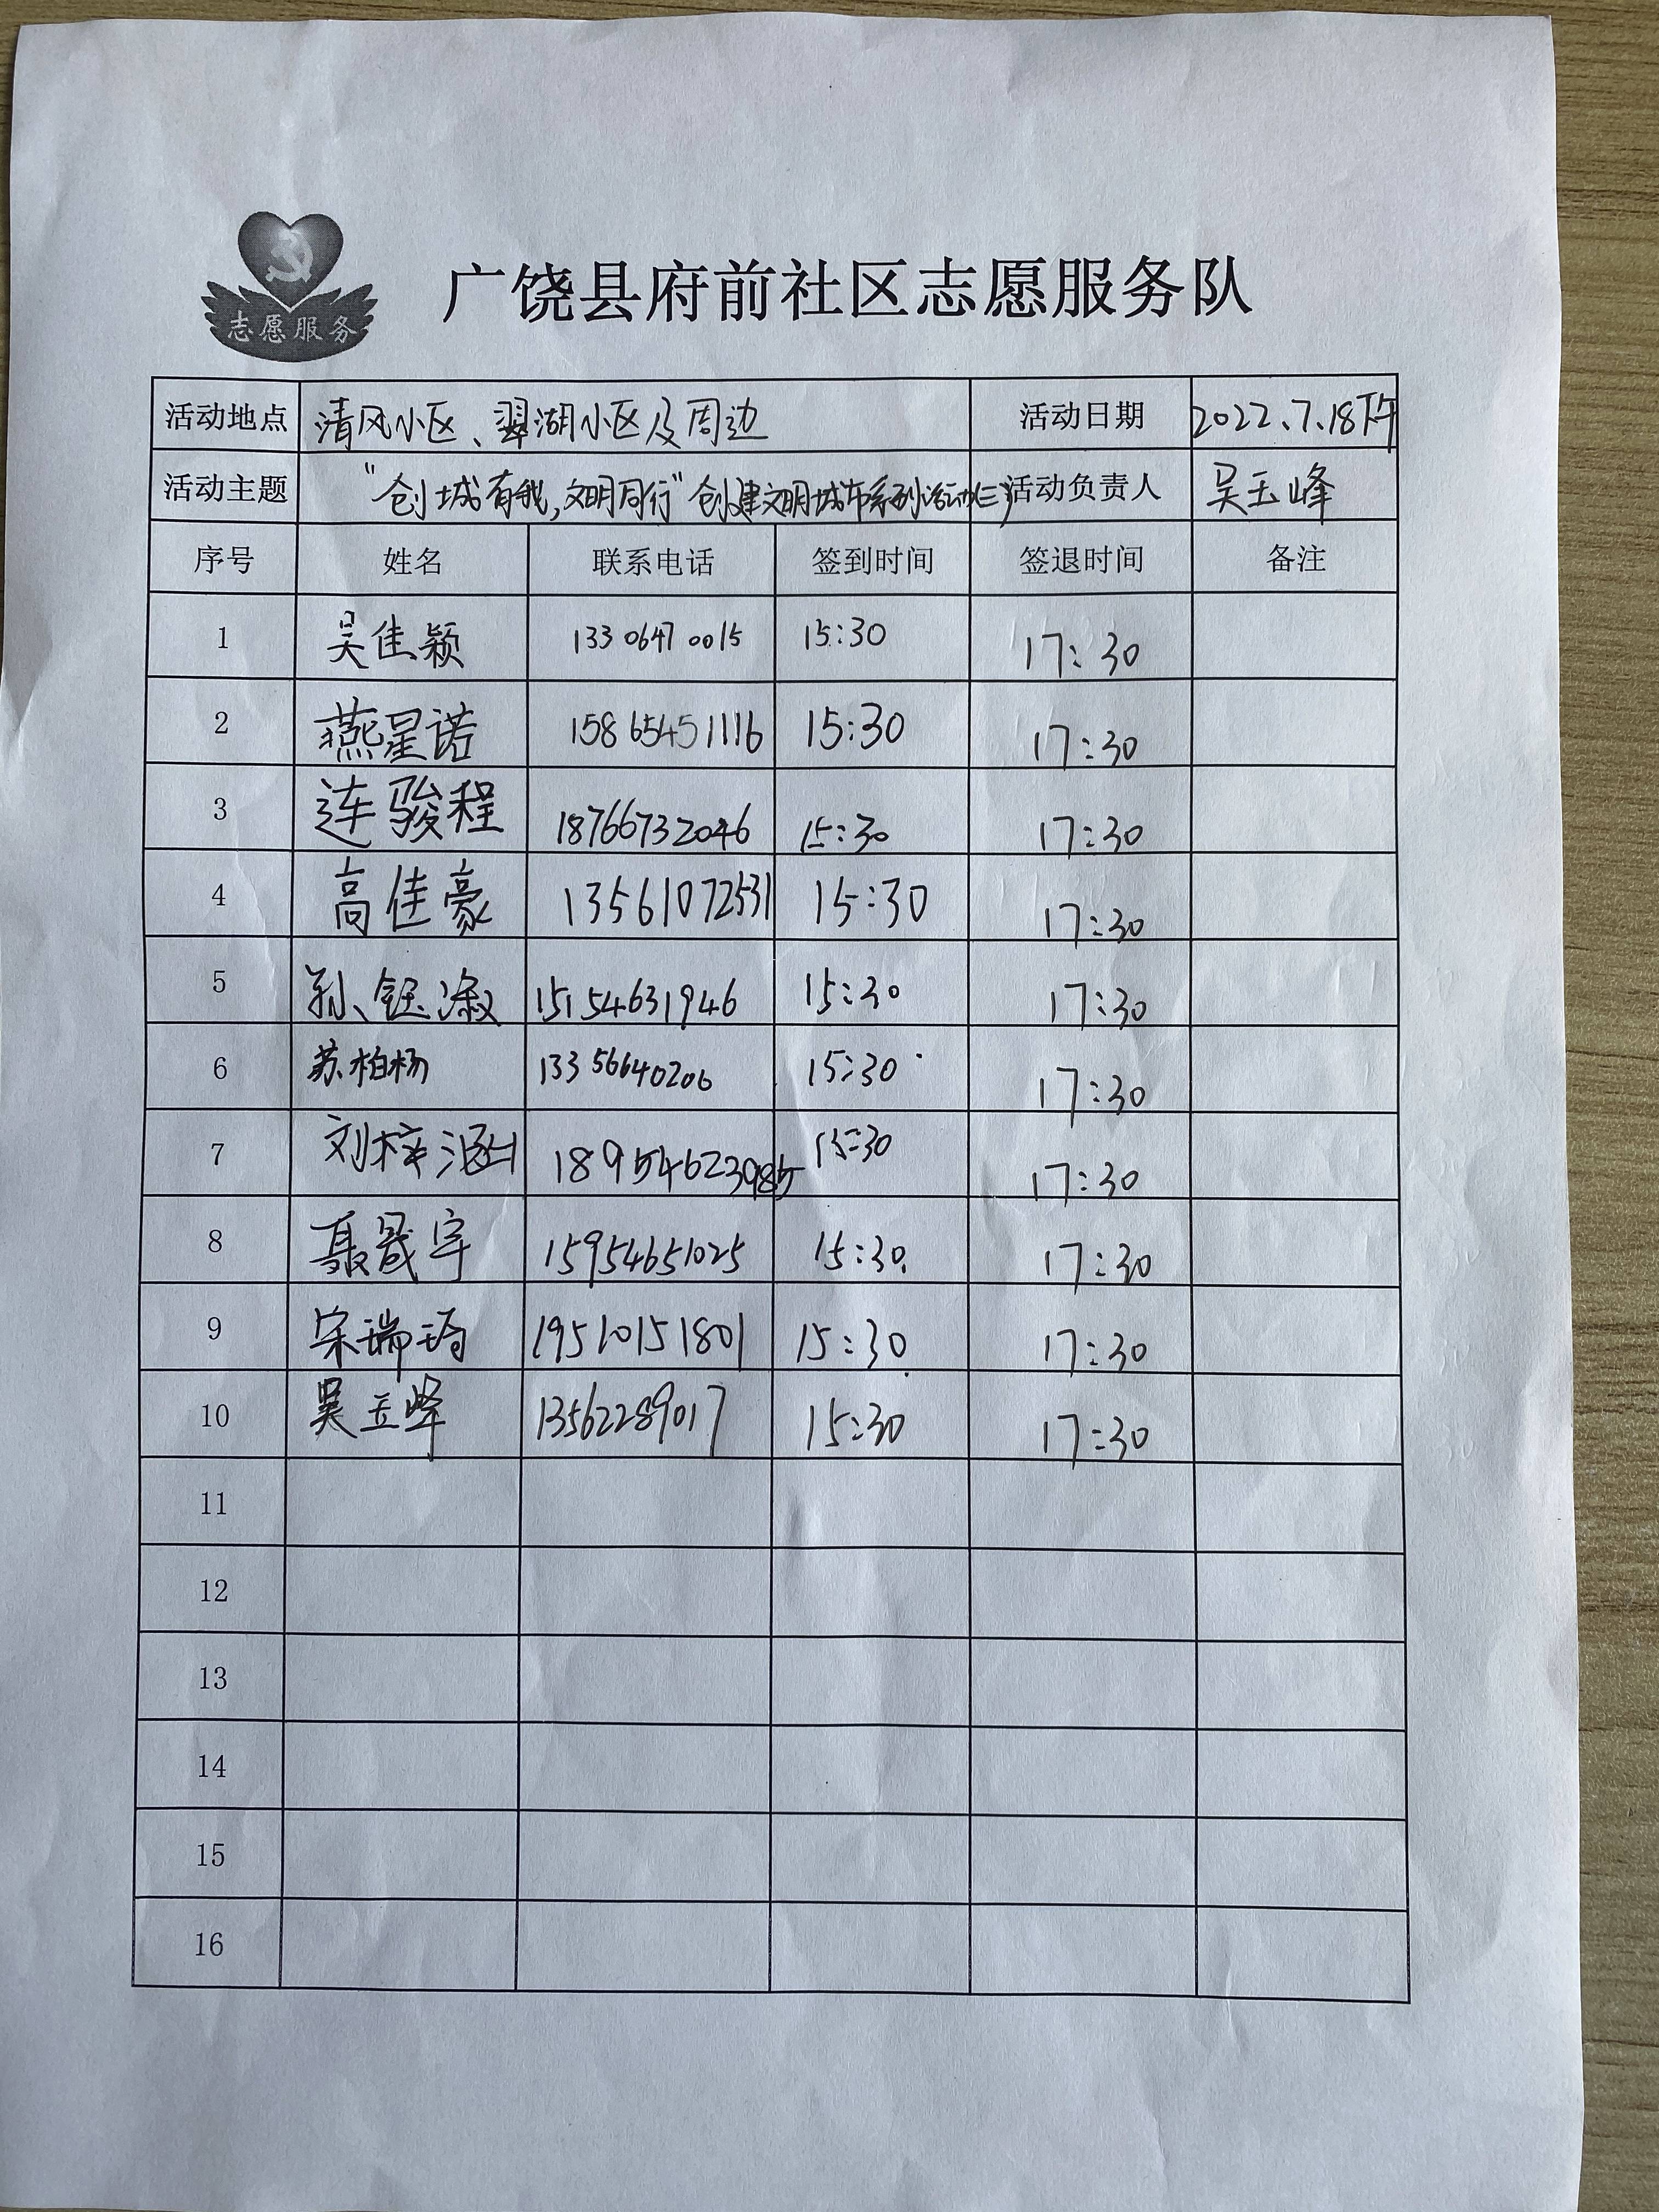 志愿服务
广饶县府前社区志愿服务队
活动地点 清风小区、翠湖小区及周边 活动日期 2022.7.18下午
活动主题 "创城有我,文明同行"创建文明城市系列活动(三) 活动负责人 吴玉峰
序号 姓名 联系电话 签到时间 签退时间 备注
1 吴佳颖 133 0647 0015 15:30 17:30
2 燕星诺 15865451116 15:30 17:30
3 连骏程 18766732046 15:30 17:30
4 高佳豪 13561072531 15:30 17:30
5 孙钰淑 15154631946 15:30 17:30
6 苏柏杨 13356640206 15:30 17:30
7 刘梓涵 18954623985 15:30 17:30
8 聂晟宇 15954651025 15:30 17:30
9 宋瑞琦 19510151801 15:30 17:30
10 吴玉峰 13562289017 15:30 17:30
11
12
13
14
15
16